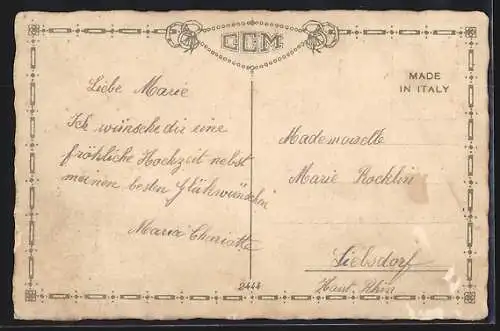 CCM
MADE
IN ITALY
Liebe Marie
Ich wünsche dir eine
fröhliche Hochzeit nebst
meinen besten Glükwünschen
Maria
Mademoiselle
Marie Rocklin
Liebsdorf
Haut-Rhin
2444